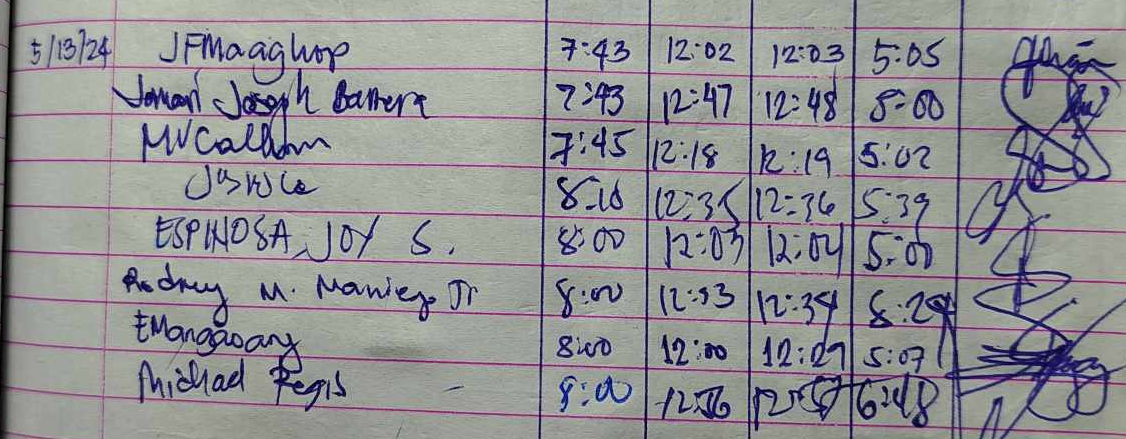 5/13/24 JFMaaghop 7:43 12:02 12:03 5:05
Joseph Barrera 7:43 12:47 12:48 5:00
7:45 12:18 12:19 5:02
8:10 12:35 12:36 5:39
ESPINOSA, JOY S. 8:00 12:03 12:04 5:00
Rodney M. Maniego Jr 8:00 12:33 12:34
EMangaoang 8:00 12:00 12:27 5:07
Michael Regis - 8:00 12:56 12:57 6:48